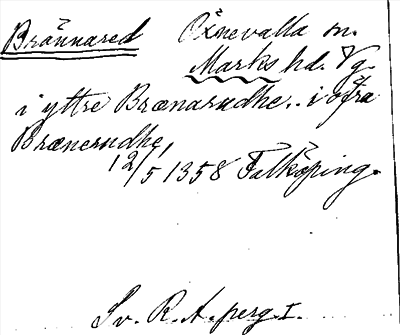 Brännared Öxnevalla sn.
Marks hd. Vg.
i yttre Brænarudhe.. i öfra
Brænerudhe
12/5 1358 Falköping.
Sv. R. A. perg. I.